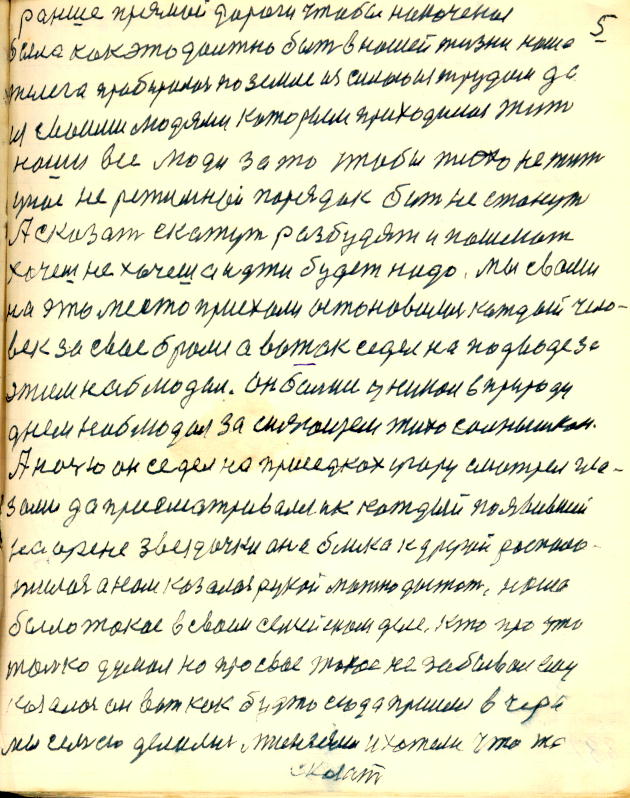 5
раньше прямой дороги чтобы
была как это должно быт в нашей жизни наша
телега пробиралас по земле из силои из трудам да
из своими людями которым приходилос жит
наши все люди за то чтобы тихо не жит
не порядок быт не станут
А сказат скажут разбудят и пошлют
хочеш не хочеш а идти будет надо. мы своим
на это место приехали остоновилис каждый чело-
век за свое брался а вот так седел на подводе за
этим наблюдал. он болши у них в природи
днем наблюдал за сияющем тихо солнышком.
А ночю он седел на приседках у гору смотрел гла-
зами да присматривалса к каждый появивший
на арене звездочки она блиска к другой роспало-
жилас а нам казалос рукой можно достат, наша
было такое в своим семейском деле. кто про что
толко думал но про свае такое не забывал ему
казалос он вот как будто сюда пришли вчера
мы сели делилис мнениям и хотели что то
сказат